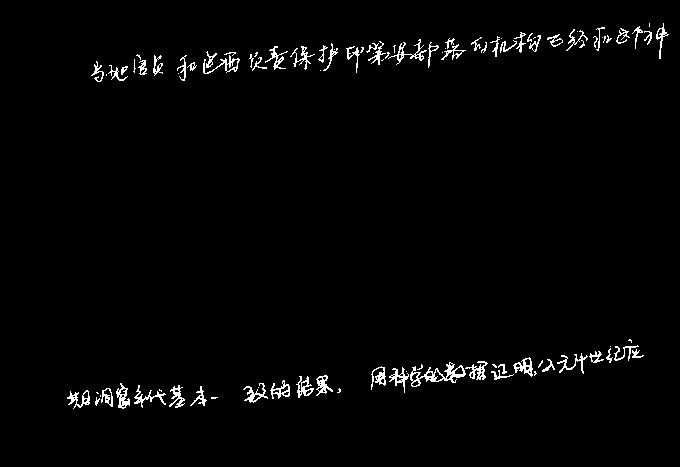 当地官员和巴西负责保护印第安部落的机构已经和这个神
期洞窟年代基本一致的结果，用科学的数据证明，公元4世纪应